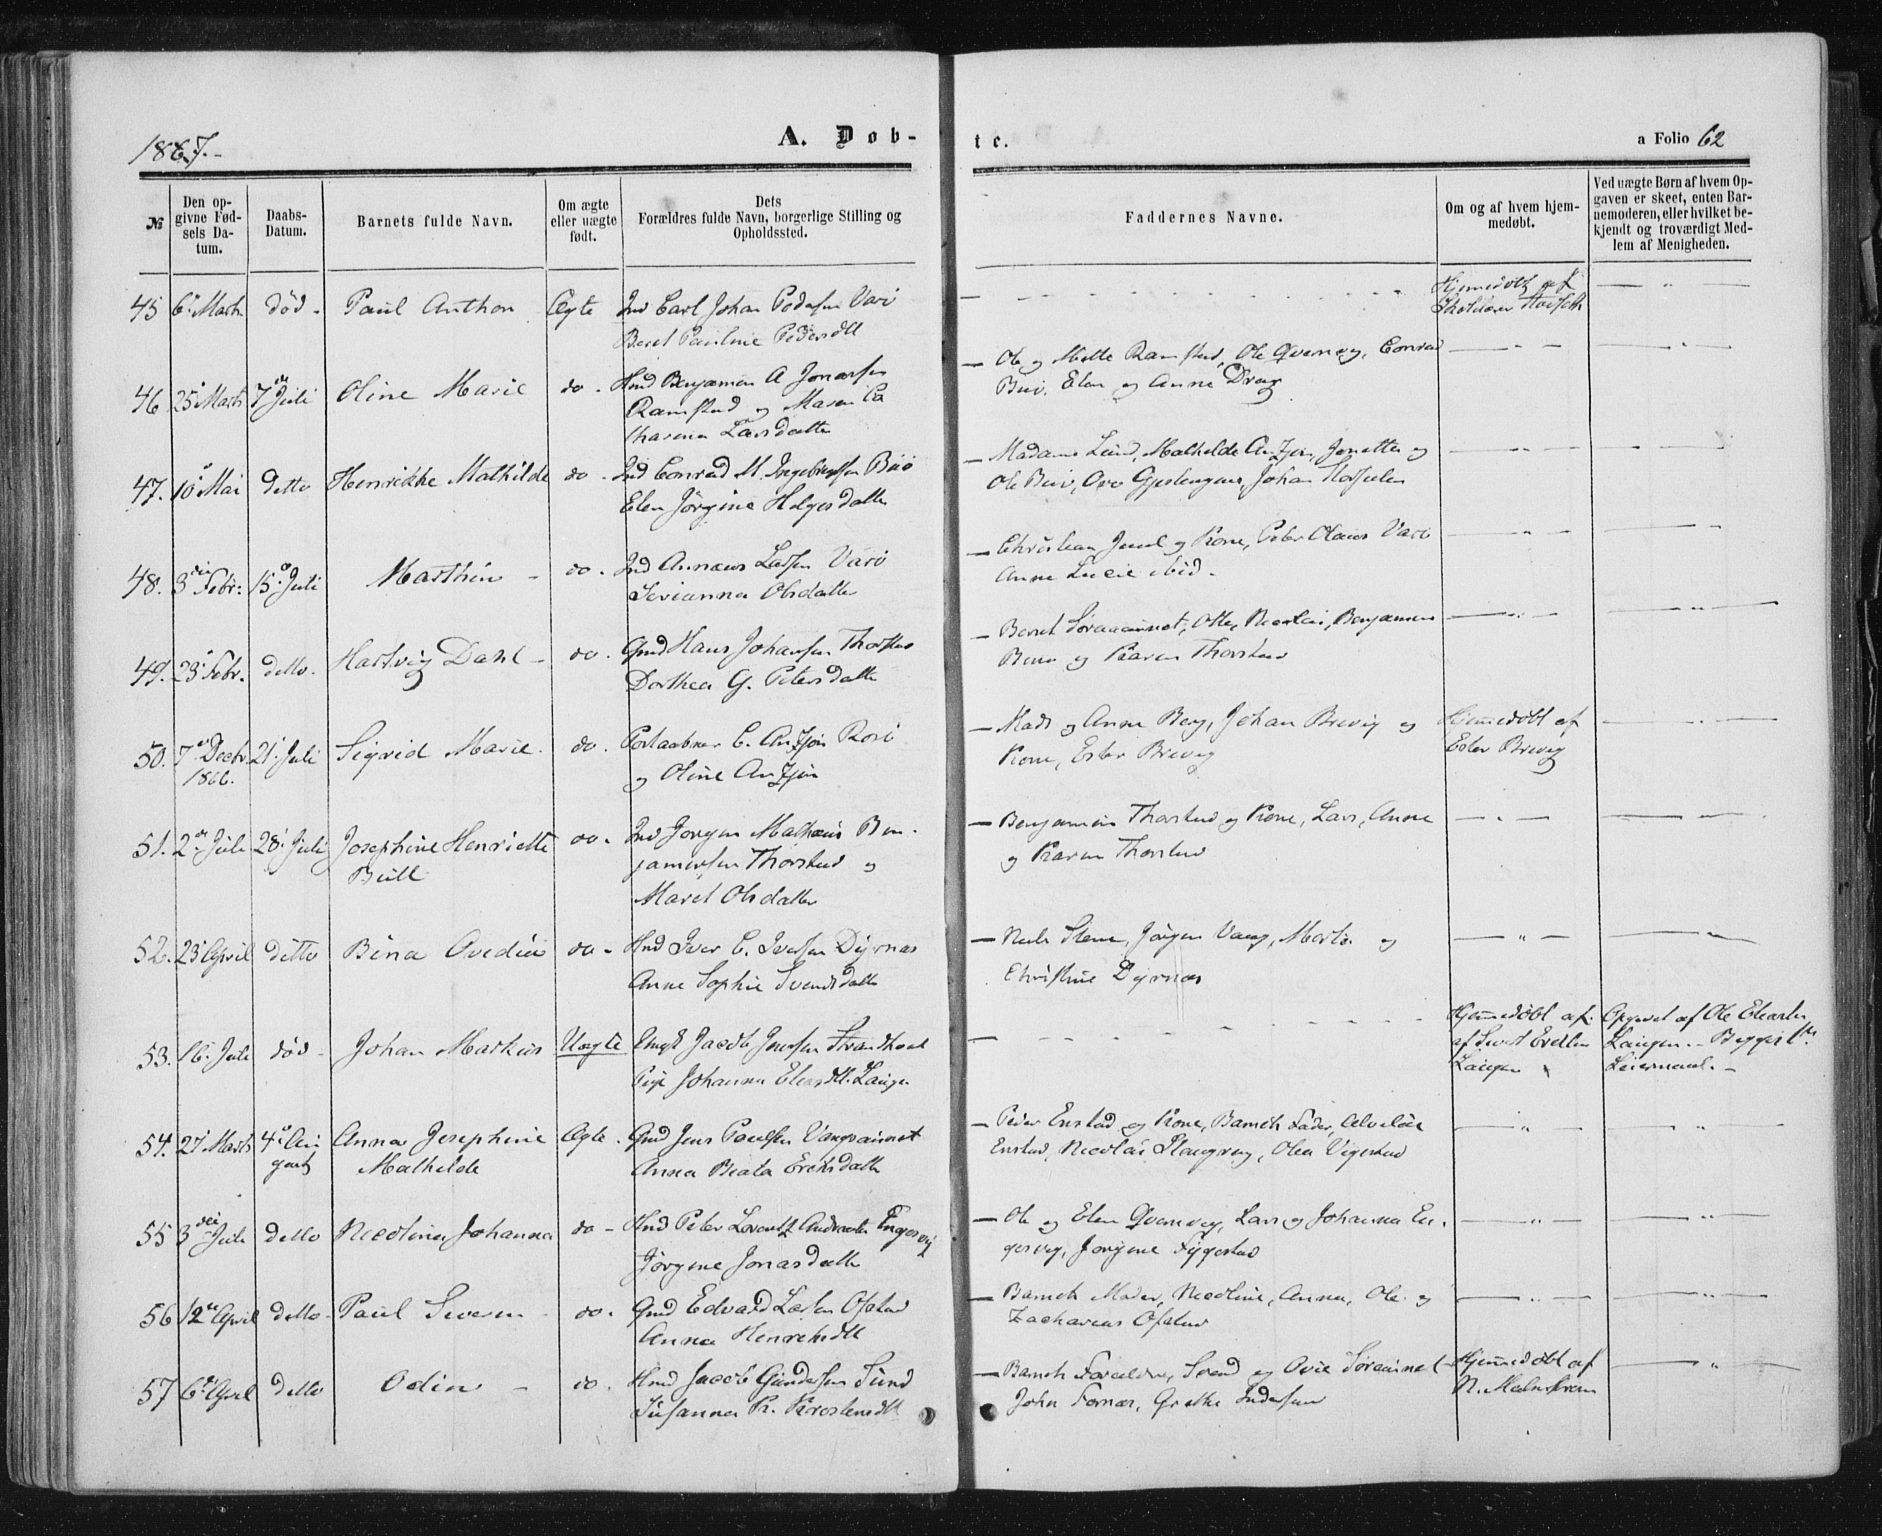 1867.-
A. Døb-
te.
a Folio 62
№
Den op-
givne Fød-
sels Da-
tum.
Daabs-
Datum.
Barnets fulde Navn.
Om ægte
eller uægte
født.
Dets
Forældres fulde Navn, borgerlige Stilling og
Opholdssted.
Faddernes Navne.
Om og af hvem hjem-
medøbt.
Ved uægte Børn af hvem Op-
gaven er skeet, enten Bar-
nemoderen, eller hvilket be-
kjendt og troværdigt Med-
lem af Menigheden.
45 6 Marts død - Paul Anthon Ægte Ind Carl Johan Pedersen Varø
Beret Pauline Pedersdtt
Hjemmedøbt af
46. 25 Marts 7de Juli Oline Marie do - Hmd Benjamin A Jonassen
Ramstad og Maren Ca
tharina Larsdatter
Ole og Mette Ramstad, Ole Qverneg, Conrad
Buø, Elen og Anne Drag
47. 10 Mai Detto Henrikke Mathilde do - Ind Conrad M. Ingebrigtsen Buø
Elen Jörgine Helgesdatter
Madame Lund, Mathilde Anzjøn, Jonetta og
Ole Buø, Ove Gjeslengene, Johan
48. 3die Febr. 15 Juli Marthin - do - Ind Annæus Larsen Varø
Serianna Olsdatter
Christian Juul og Kone, Peter Olaus Varø
Anne Lucie ibid.
49. 23 Febr. detto. Hartvig Dahl - do. Gmd Hans Johansen Thorstad
Dorthea G. Petersdatter
Beret, Nicolai, Benjamin
og Karen Thorstad
50. 7de Decbr 21 Juli Sigrid Marie - do. Postaabner C. Anzjøn Rosø
1866.
og Oline Anzjøn
Mads og Anne Berg, Johan Brevig og
Kone, Ester Brevig
Hjemmedøbt af
Ester Brevig
51. 2den Juli 28 Juli Josephine Henriette do - Ind Jørgen Mathæus Ben-
Bull
jaminsen Thorstad og
Maret Olsdatter
Benjamin Thorstad og Kone, Lars, Anne
og Karen Thorstad
52. 23 April ditto Bina Ovedia do - Hmd Iver C. Iversen Dyrnæs
Anne Sophie Svendsdatter
Nils Stene, Jörgen Vang, Marta og
Christine Dyrnæs
53. 16. Juli død - Johan Markus Uægte Enqk Jacob Jensen Strandhaal
Pige Johanna Eliasdtt. Laugen
Hjemmedøbt af
af
Laugen
Opgivet af Ole
Laugen -
Leiermaal. -
54. 21 Marts 4de Au- Anna Josephine Ægte. Gmd Jens Paulsen
gust Mathilde
Anna Beata Eriksdatter
Peder Enstad og Kone, Barnets Fader,
Enstad, Nicolai, Olea Vigestad
55 3die Juli detto Nicolina Johanna do - Hmd Peter Lorentz Engesvig
Jörgine Jonasdatter
Ole og Elen Qverneg, Lars og Johanna En-
gesvig, Jorgine Fyggestad
56 12 April detto Paul Severin do. Gmd Edvard Larsen Ofstad
Anna Henriksdtt
Barnets Moder, Nicoline, Anna, Ole og
Zacharias Ofstad
57 6 April detto Odin - do. Hmd Jacob Gundersen Sund
Susanna K. Kirstensdtt
Barnets Forældre, Svend og Ovie
John Fornæs, Grethe
Hjemmedøbt af
N. Malmstrøm